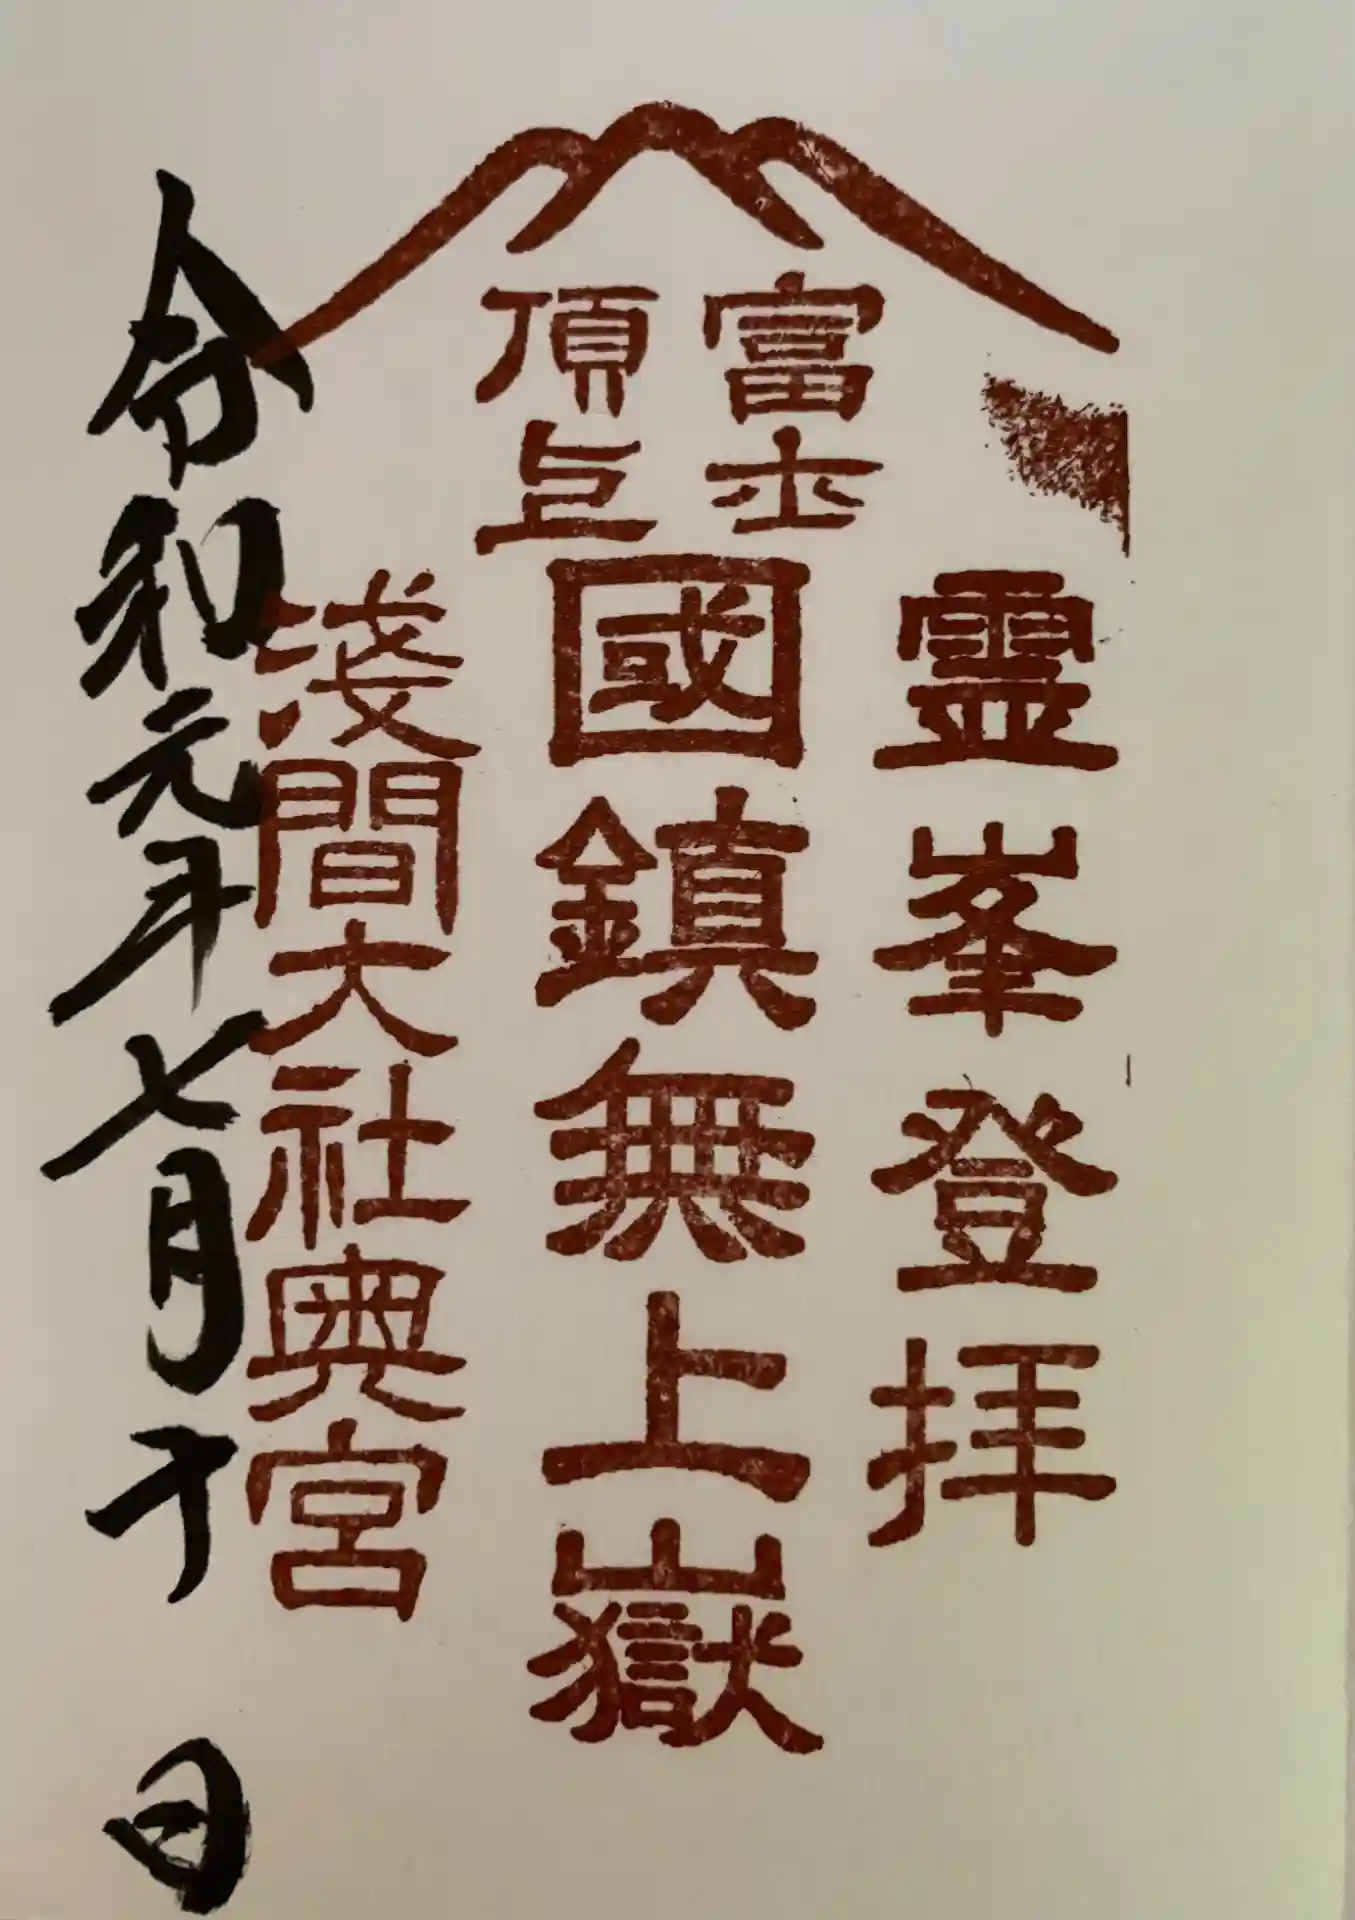 富士
頂上
霊峯登拝
國鎮無上嶽
淺間大社奥宮
令和元年七月 日